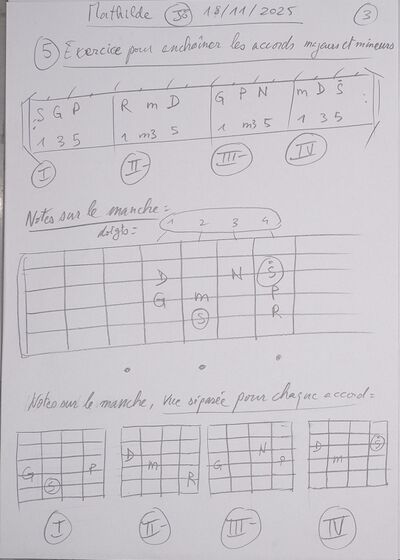 Mathilde JS 18/11/2025 3
5 Exercice pour enchaîner les accords majeurs et mineurs
S G P R m D G P N m D S
1 3 5 1 m3 5 1 m3 5 1 3 5
I II- III- IV
Notes sur le manche =
doigts = 1 2 3 4
D N S
G m P
S R
Notes sur le manche, vue séparée pour chaque accord =
D N D S
G P m G P m
S R
I II- III- IV